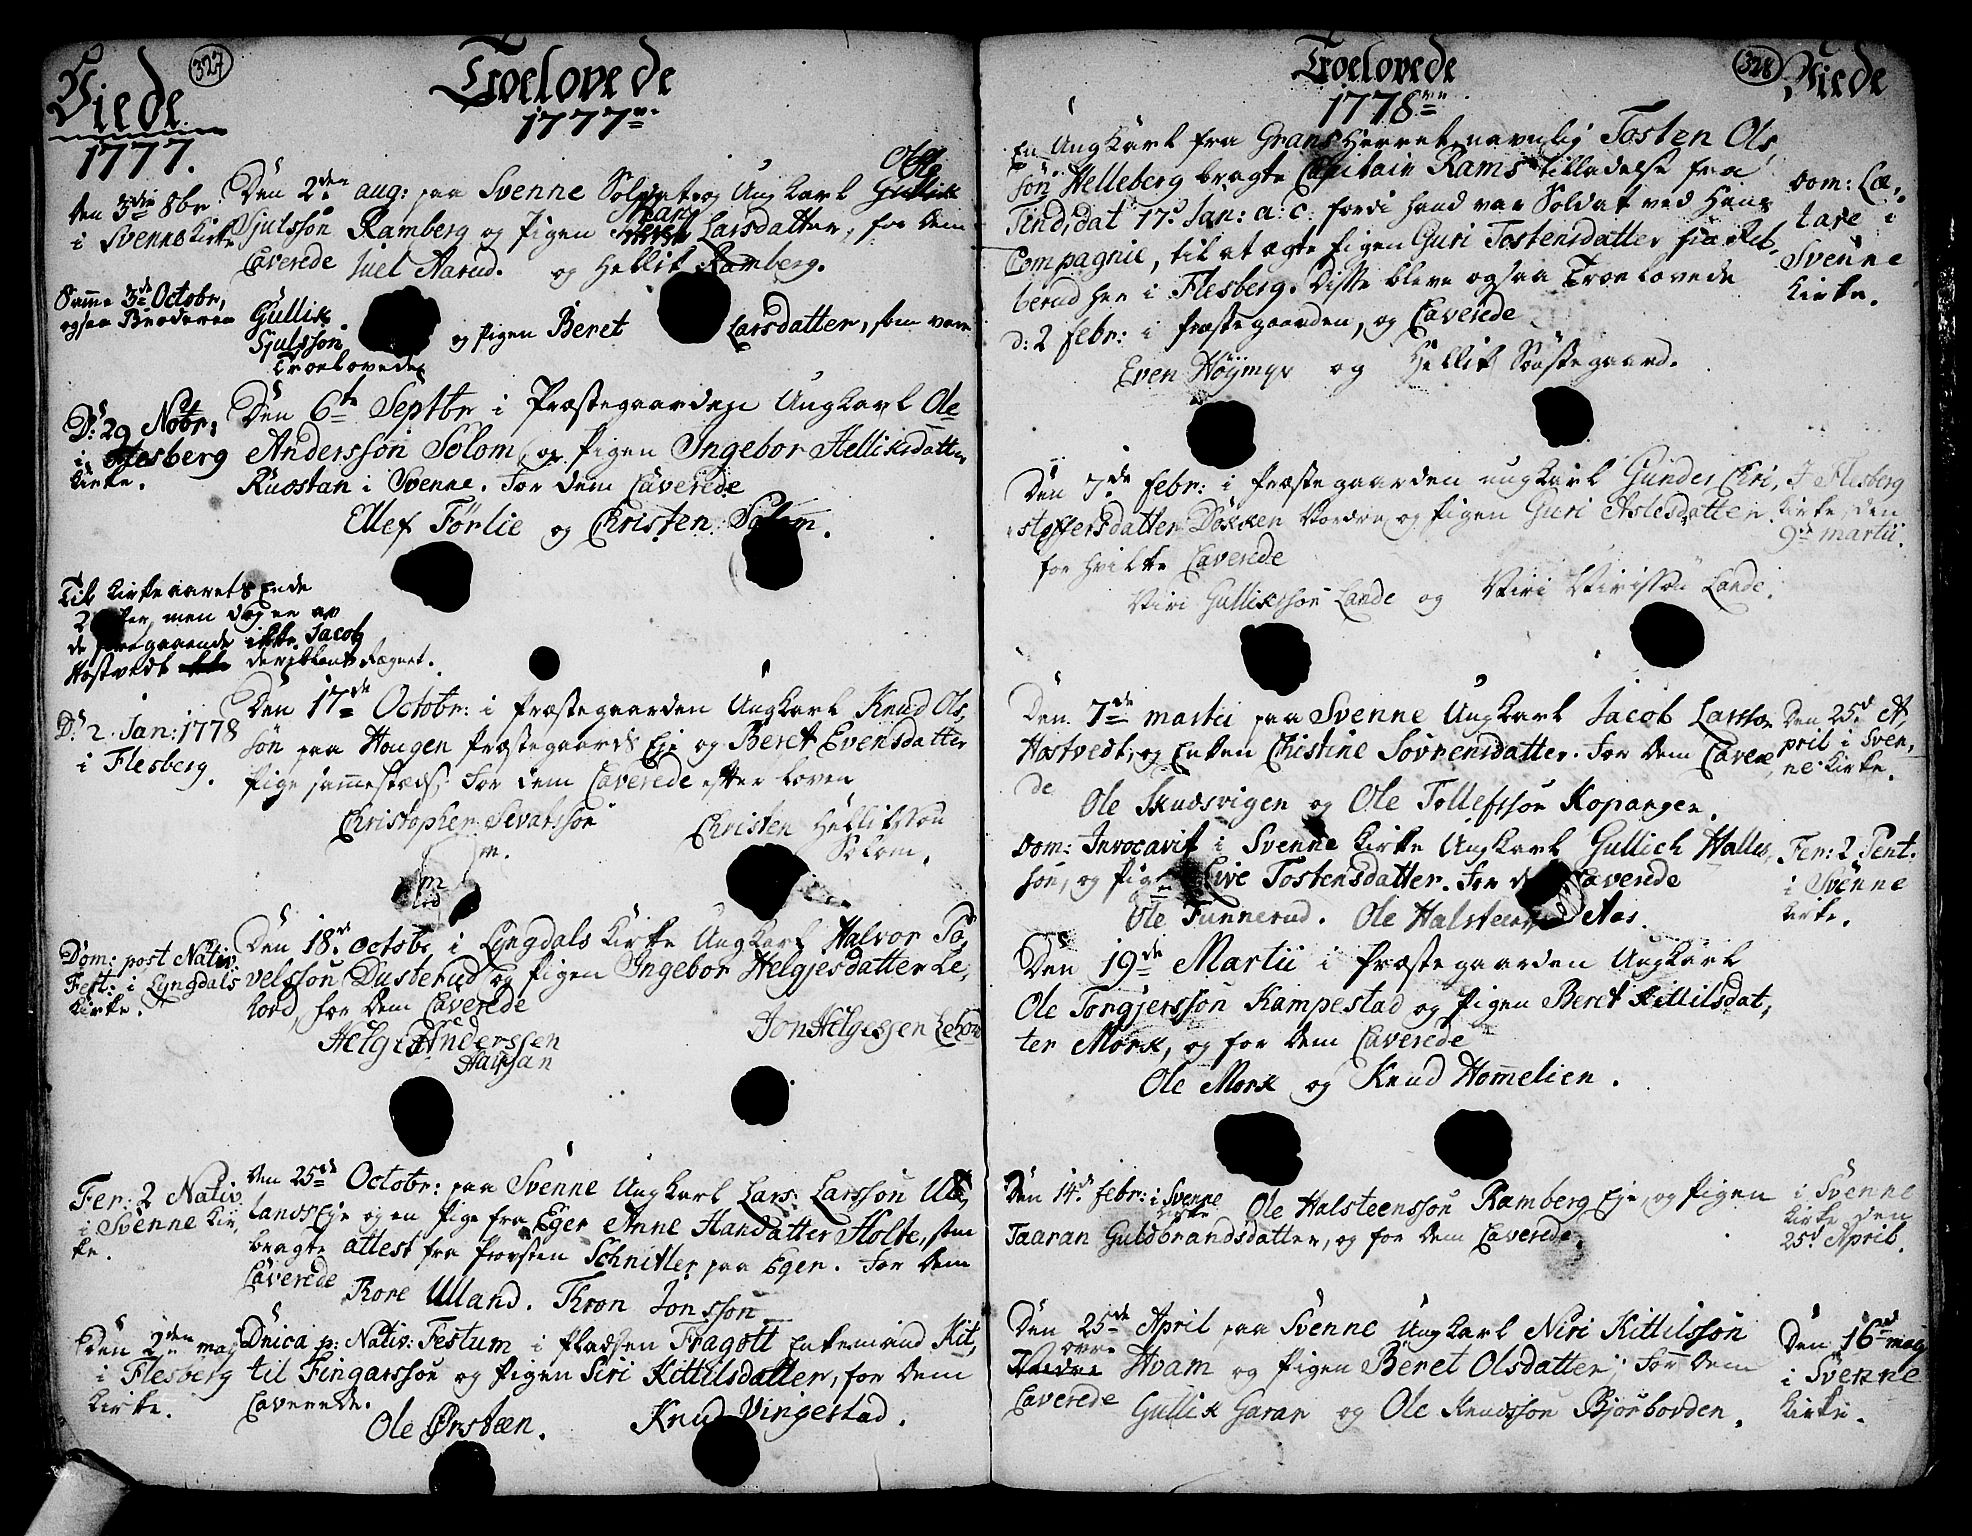 327
Viede
1777.
Troelovede
1777
den 3die 8br.
i Svenne Kirke
Den 2den aug: paa Svenne Soldat og Ungkarl Gullik Ole
Sjulssön Ramberg og Pigen Beret Mari Larsdatter, for dem
Caverede Juel Aarud. og Hellik Ramberg.
Samme 3de Octobr,
ogsaa Broderen
Gullik
Sjulssön og Pigen Beret Larsdatter, som vare
Troelovede
D: 29 Novbr:
i Flesberg
Kirke.
Den 6te Septbr i Præstegaarden Ungkarl Ole
Anderssön Solom, og Pigen Ingebor Helliksdatter
Ruostan i Svenne. For dem Caverede
Ellef Förlie og Christen Solem.
Til Kirkeaarets Ende
men dog en av
de foregaaende ikke Jacob
Hostvedt deriblant Regnet.
D: 2. Jan: 1778
i Flesberg.
Den 17de Octobr: i Præstegaarden Ungkarl Knud Ols,
sön paa Hougen Præstegaards Eje og Beret Evensdatter
Pige sammesteds. For dem Caverede efter loven
Christopher Sevatssön
Christen Hellikssön
Solom.
Dom: post Nativ.
Fest: i Lyngdals
Kirke.
Den 18de octobr i Lyngdals Kirke Ungkarl Halvor Pa,
velssön Dusterud og Pigen Ingebor Helgjesdatter Le,
kord, for dem Caverede
Helge Anderssen
Jon Helgessen
Fer: 2 Nativ.
i Svenne Kir,
ke.
Den 25de Octobr: paa Svenne Ungkarl Lars Larssön Ul,
lands Eje og en Pige fra Eger Anne Hansdatter Holte, som
bragte attest fra Provsten Schnitler paa Eger. For dem
Caverede Tore Ulland. Tron Jonssön
Den 2den maj
i Flesberg
Kirke.
Dnica p: Nativ: Festum i Pladsen Fragott Enkemand Kit,
til Fingarssön og Pigen Siri Kittilsdatter, for dem
Caverede.
Ole Ørsteen. Knud Vingestad.
Troelovede
1778
328
Viede
En Ungkarl fra Grans Herret, navnlig Tosten Ols,
sön Helleberg bragte Capitain Rams tilladelse fra
Find, dat 17. Jan: a: c: fordi hand var Soldat ved Hans
Compagnie, til at ægte Pigen Guri Tostensdatter fra
berud her i Flesberg. Disse bleve ogsaa Troelovede
d: 2 Febr: i Præstegaarden, og Caverede
Even Höymyr og Hellik Sönstegaard.
Dom: Læ,
tare i
Svenne
Kirke.
Den 7de Febr: i Præstegaarden ungkarl Gunder Chri,
stoffersdatter Dokken Nordre, og Pigen Guri Aslesdatter
for hvilke Caverede
Niri Gullikssön Lande og Niri Nirissön Lande.
I Flesberg
Kirke, den
9de martii.
Den 7de martii paa Svenne Ungkarl Jacob Larssön
Hostvedt, og Enken Christine Sövrensdatter. For dem Cavere
de
Ole Skudsvigen og Ole Tollefssön Kopangen.
Den 25d A,
pril i Sven,
ne Kirke.
Dom: Invocavit i Svenne Kirke Ungkarl Gullich Halles,
sön, og Pigen Live Tostensdatter. For dem Caverede
Ole Tunnerud. Ole Halsteens Aas.
Fer: 2 Pent.
i Svenne
Kirke.
Den 19de Martii i Præstegaarden Ungkarl
Ole Torgjerssön Kampestad og Pigen Beret Kittilsdat,
ter Mörk, og for dem Caverede
Ole Mork og Knud Hommelien.
Den 14de Febr: i Svenne Kirke Ole Halsteenssön Ramberg Eje, og Pigen
Taaran Guldbrandsdatter, og for dem Caverede.
i Svenne
Kirke den
25d April.
Den 25de April paa Svenne Ungkarl Niri Kittilssön
övre Hvam og Pigen Beret Olsdatter; For dem
Caverede Gullik Garaas og Ole Knudssön Bjorbovden.
Den 16de maj
i Svenne
Kirke.